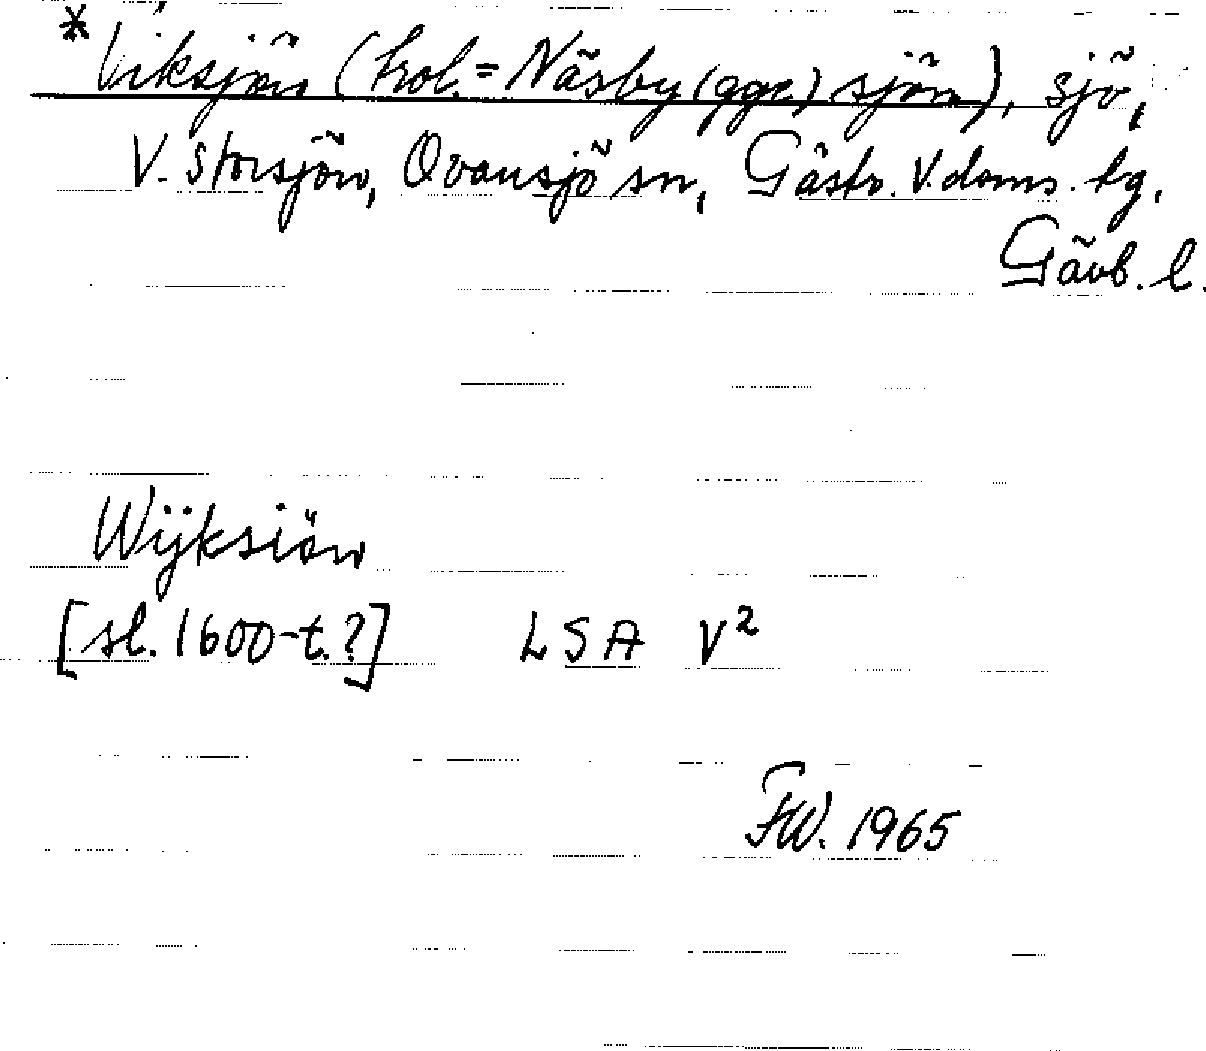 * Viksjön (trol. = Näsby(gge)sjön), sjö,
V. Storsjön, Ovansjö sn, Gästr. V. doms. tg,
Gävb. l.
Wijksiön
[sl. 1600-t.?] LSA V²
FW. 1965